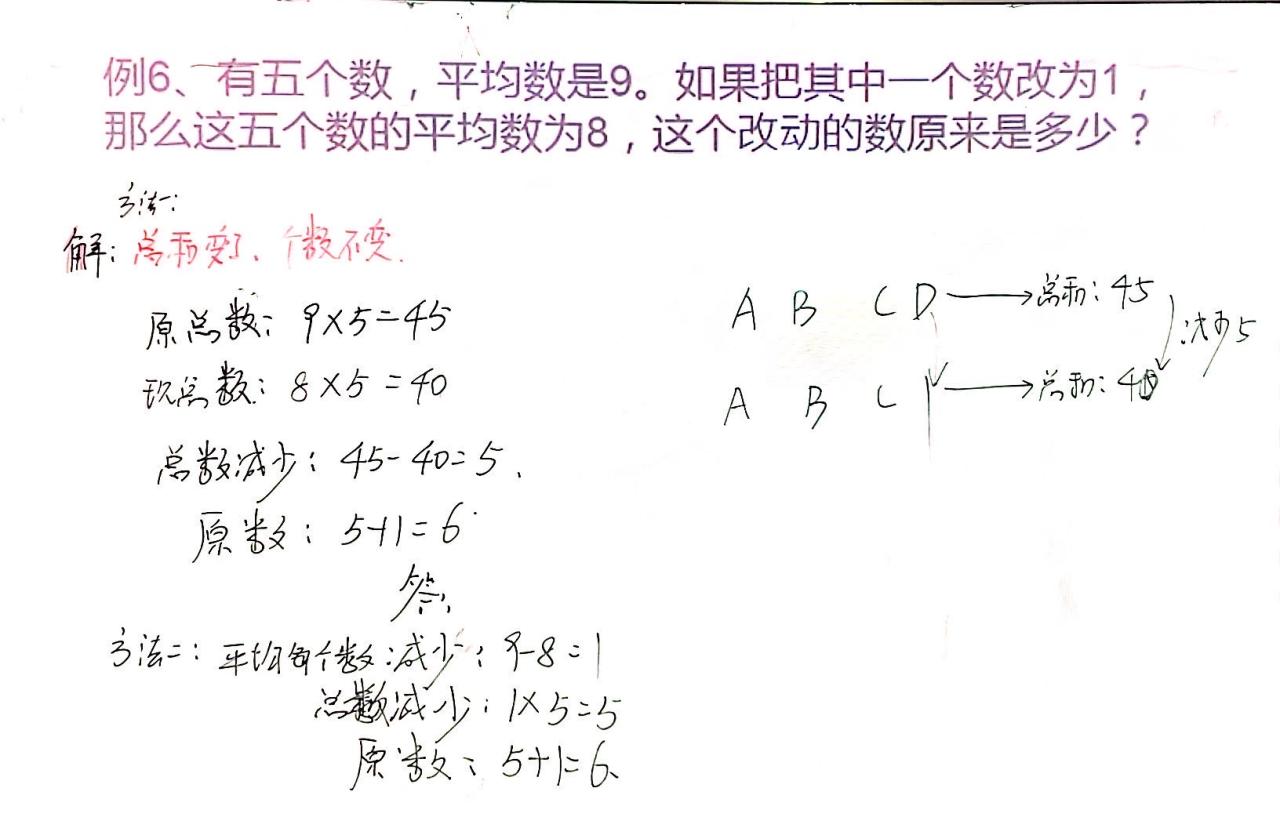 例6、有五个数，平均数是9。如果把其中一个数改为1，
那么这五个数的平均数为8，这个改动的数原来是多少？
方法一：
解：总和变了、个数不变.
原总数：9×5=45
现总数：8×5=40
总数减少：45-40=5.
原数：5+1=6
答.
方法二：平均每个数减少：9-8=1
总数减少：1×5=5
原数：5+1=6.
A B C D → 总和：45
减少5
A B C 1 → 总和：40